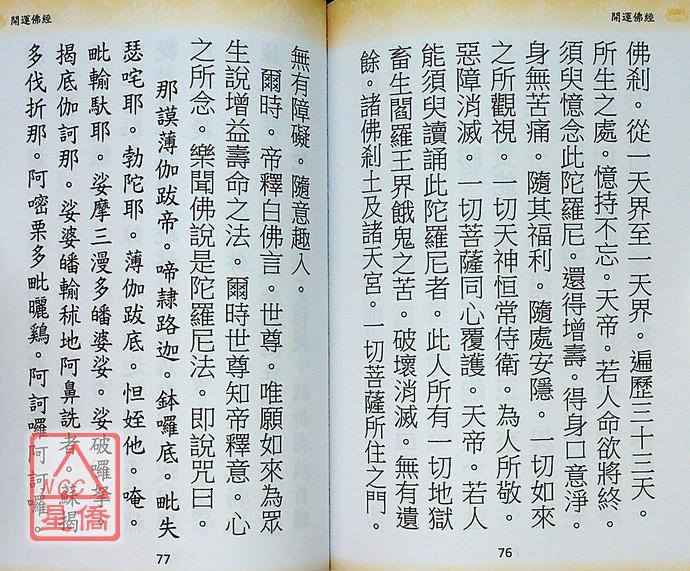 開運佛經
佛剎。從一天界至一天界。遍歷三十三天。
所生之處。憶持不忘。天帝。若人命欲將終。
須臾憶念此陀羅尼。還得增壽。得身口意淨。
身無苦痛。隨其福利。隨處安隱。一切如來
之所觀視。一切天神恒常侍衛。為人所敬。
惡障消滅。一切菩薩同心覆護。天帝。若人
能須臾讀誦此陀羅尼者。此人所有一切地獄
畜生閻羅王界餓鬼之苦。破壞消滅。無有遺
餘。諸佛剎土及諸天宮。一切菩薩所住之門。
76
開運佛經
無有障礙。隨意趣入。
爾時。帝釋白佛言。世尊。唯願如來為眾
生說增益壽命之法。爾時世尊知帝釋意。心
之所念。樂聞佛說是陀羅尼法。即說咒曰。
那謨薄伽跋帝。啼隸路迦。鉢囉底。毗失
瑟咤耶。勃陀耶。薄伽跋底。怛姪他。唵。
毗輸馱耶。娑摩三漫多皤婆娑。娑破囉拏。
揭底伽訶那。娑婆皤輸秫地阿鼻詵者。蘇揭
多伐折那。阿嘧栗多毗曬鷄。阿訶囉阿訶囉。
77
WCC
星僑